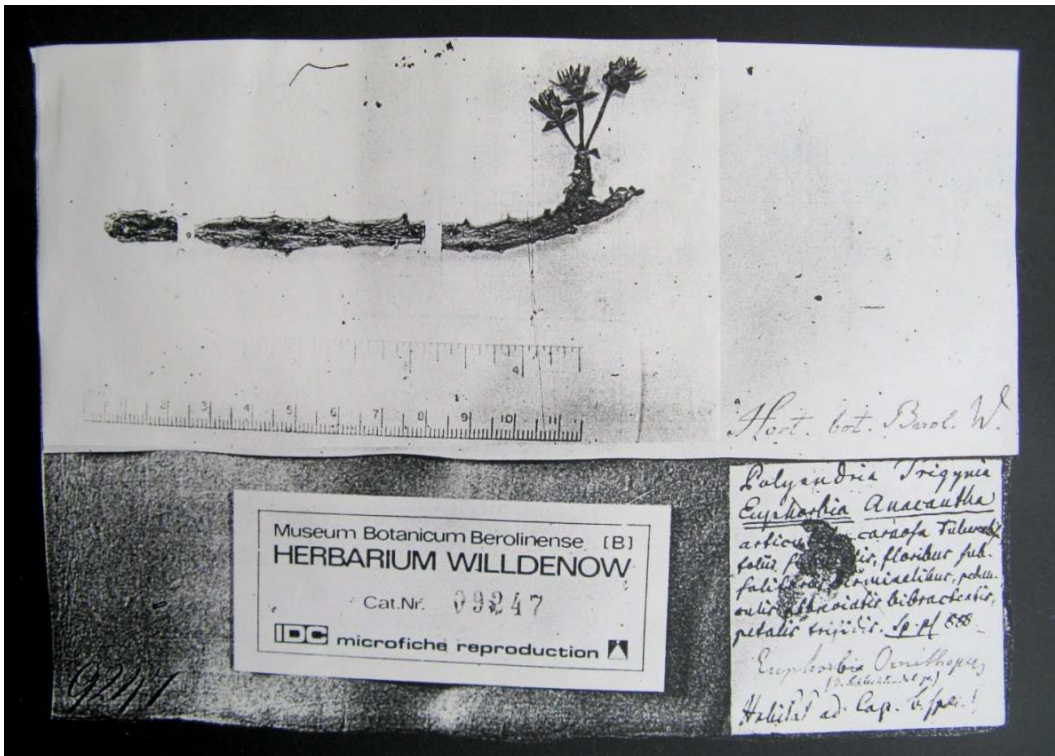 2 3 4 5 6 7 8 9 10 11
4
Hort. bot. Berol. W.
Museum Botanicum Berolinense [B]
HERBARIUM WILLDENOW
Cat.Nr. 09247
IDC microfiche reproduction
9247
Polyandria Trigynia
Euphorbia Anacantha
carnosa tuberculis
floribus sub-
terminalibus, pedun-
culis abbreviatis bibracteatis,
petalis trifidis. Sp. pl 888
Euphorbia Ornithopus
Habitat ad Cap. b. spei.